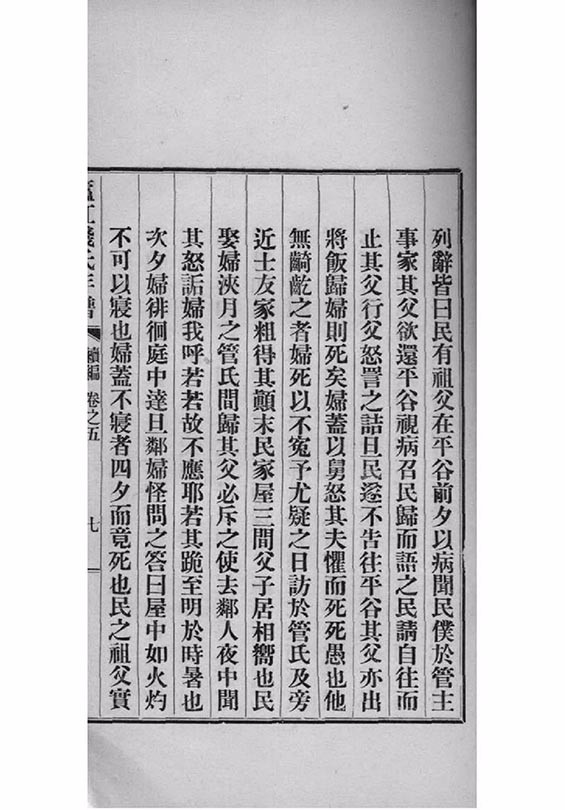 列辭皆曰民有祖父在平谷前夕以病聞民僕於管主
事家其父欲還平谷視病召民歸而語之民請自往而
止其父行父怒詈之詰旦民遂不告往平谷其父亦出
將飯歸婦則死矣婦蓋以舅怒其夫懼而死死愚也他
無齮齕之者婦死以不冤予尤疑之日訪於管氏及旁
近士友家粗得其顛末民家屋三間父子居相嚮也民
娶婦浹月之管氏間歸其父必斥之使去鄰人夜中聞
其怒詬婦我呼若若故不應耶若其跪至明於時暑也
次夕婦徘徊庭中達旦鄰婦怪問之答曰屋中如火灼
不可以寢也婦蓋不寢者四夕而竟死也民之祖父實
錢氏
續編 卷之五
七